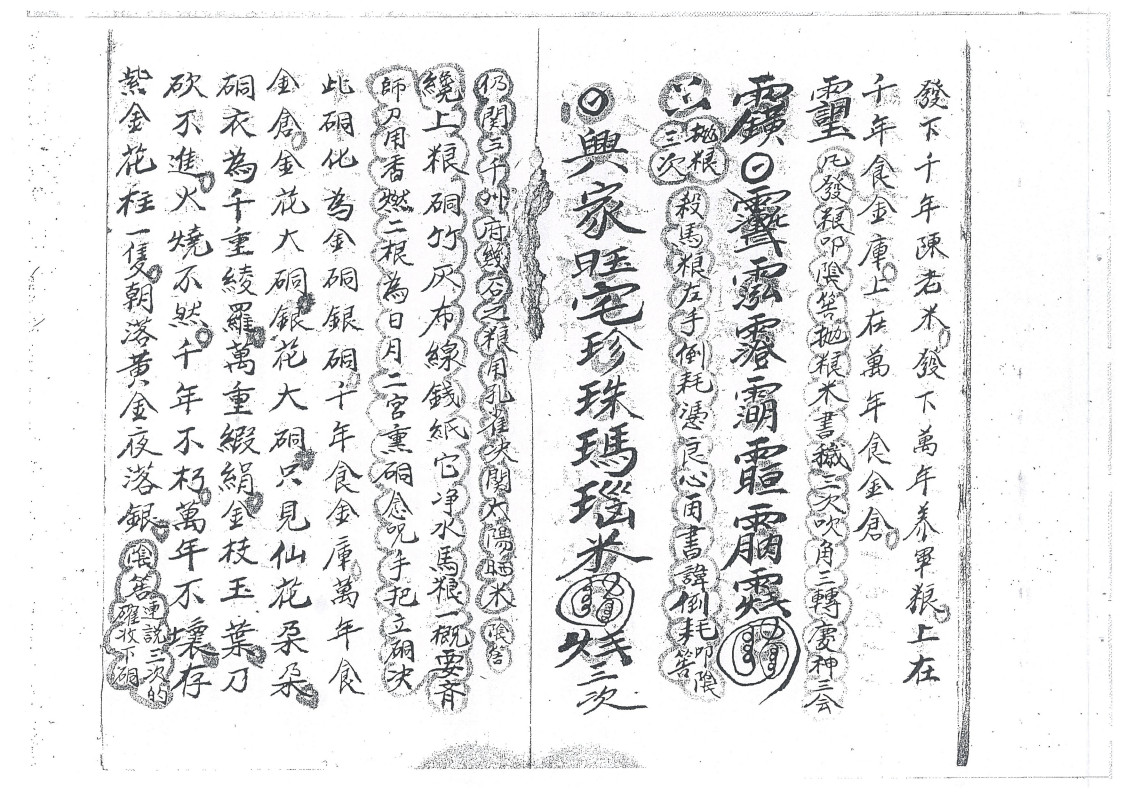 發下千年陳老米發下萬年养軍粮上在
千年食金庫上在萬年食金倉
凡發粮叩陰筶抛粮米書穢三次吹角三轉慶神三会
抛粮三次 殺馬粮左手倒耗憑良心用書諱倒耗叩陰筶
興家旺宅珍珠瑪瑙米 三次
仍閗三千州府幾谷之粮用孔雀决閗太陽晒米 陰筶
繞上粮硐竹灰布線錢紙它净水馬粮一概要齐
師刀用香燃二根為日月二宮熏硐念咒手把立硐决
此硐化為金硐銀硐千年食金庫萬年食
金倉金花大硐銀花大硐只見仙花朶朶
硐衣為千重綾羅萬重緞絹金枝玉葉刀
砍不進火燒不然千年不朽萬年不壞存
紫金花柱一隻朝落黄金夜落銀 陰筶連說三次的確收下硐